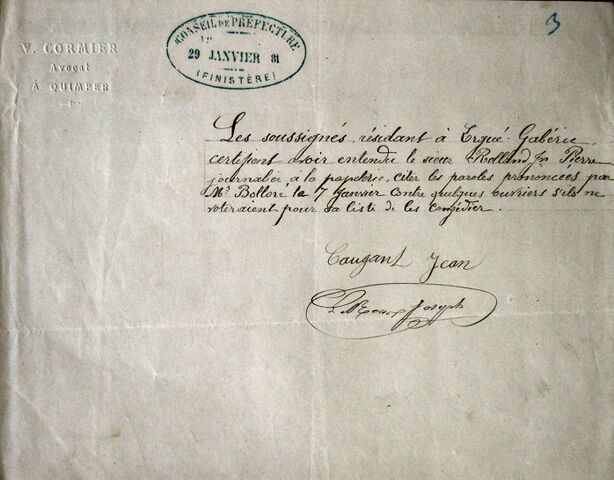 V. CORMIER
Avocat
À QUIMPER
CONSEIL DE PRÉFECTURE
29 JANVIER 81
(FINISTÈRE)
3
Les soussignés, résidant à Ergué Gabéric
certifient avoir entendu le sieur Rolland, Pierre
journalier à la papeterie, citer les paroles prononcées par
Mr Bolloré le 7 Janvier contre quelques ouvriers s'ils ne
voteraient pour sa liste de les congédier.
Caugant Jean
Joseph